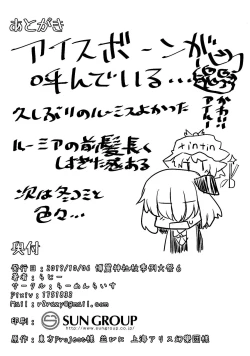 あとがき
アイスボーンが
呼んでいる…
久しぶりのルーミアよかった
かわいい
ルーミアの前髪長く
しすぎた感ある
tintin
次は冬コミと
色々…
奥付
発行日：2019/10/06 博麗神社秋季例大祭6
印刷：SUN GROUP
http://www.sungroup.co.jp/
原作：東方Project様 並びに 上海アリス幻樂団様